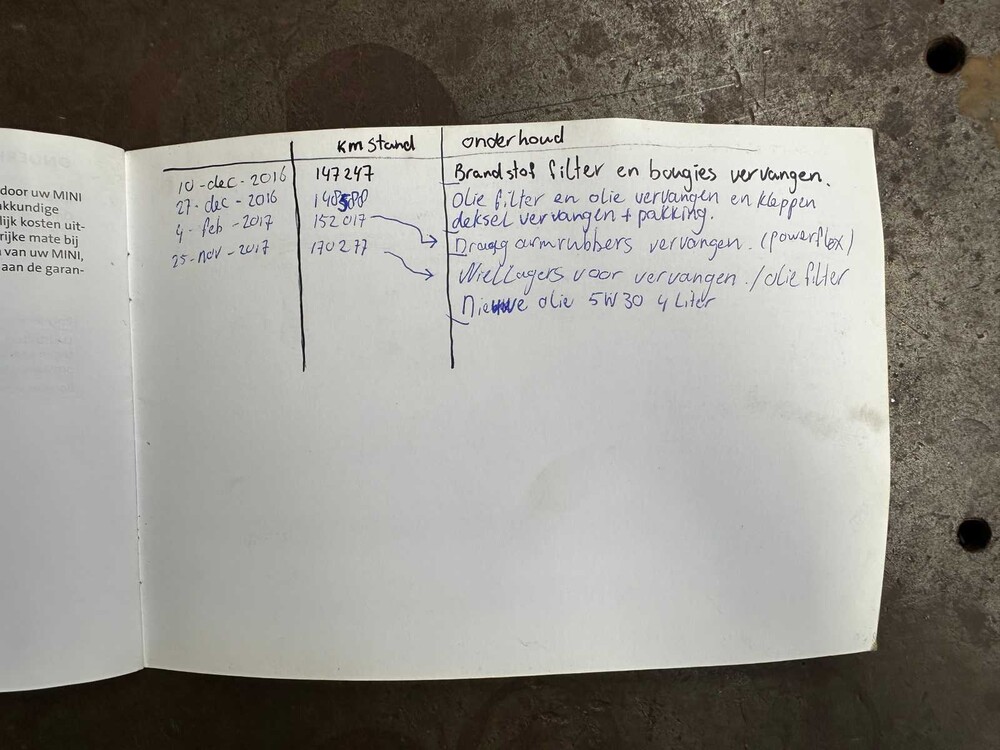 door uw MINI
akkundige
lijk kosten uit-
rijke mate bij
n van uw MINI,
aan de garan-
km stand onderhoud
10-dec-2016 147247 Brandstof filter en bougies vervangen.
27-dec-2016 Olie filter en olie vervangen en kleppen
deksel vervangen + pakking.
4-feb-2017 152017 Draag armrubbers vervangen. (powerflex)
25-nov-2017 170277 Wiellagers voor vervangen. / olie filter
Nieuwe olie 5W30 4 Liter